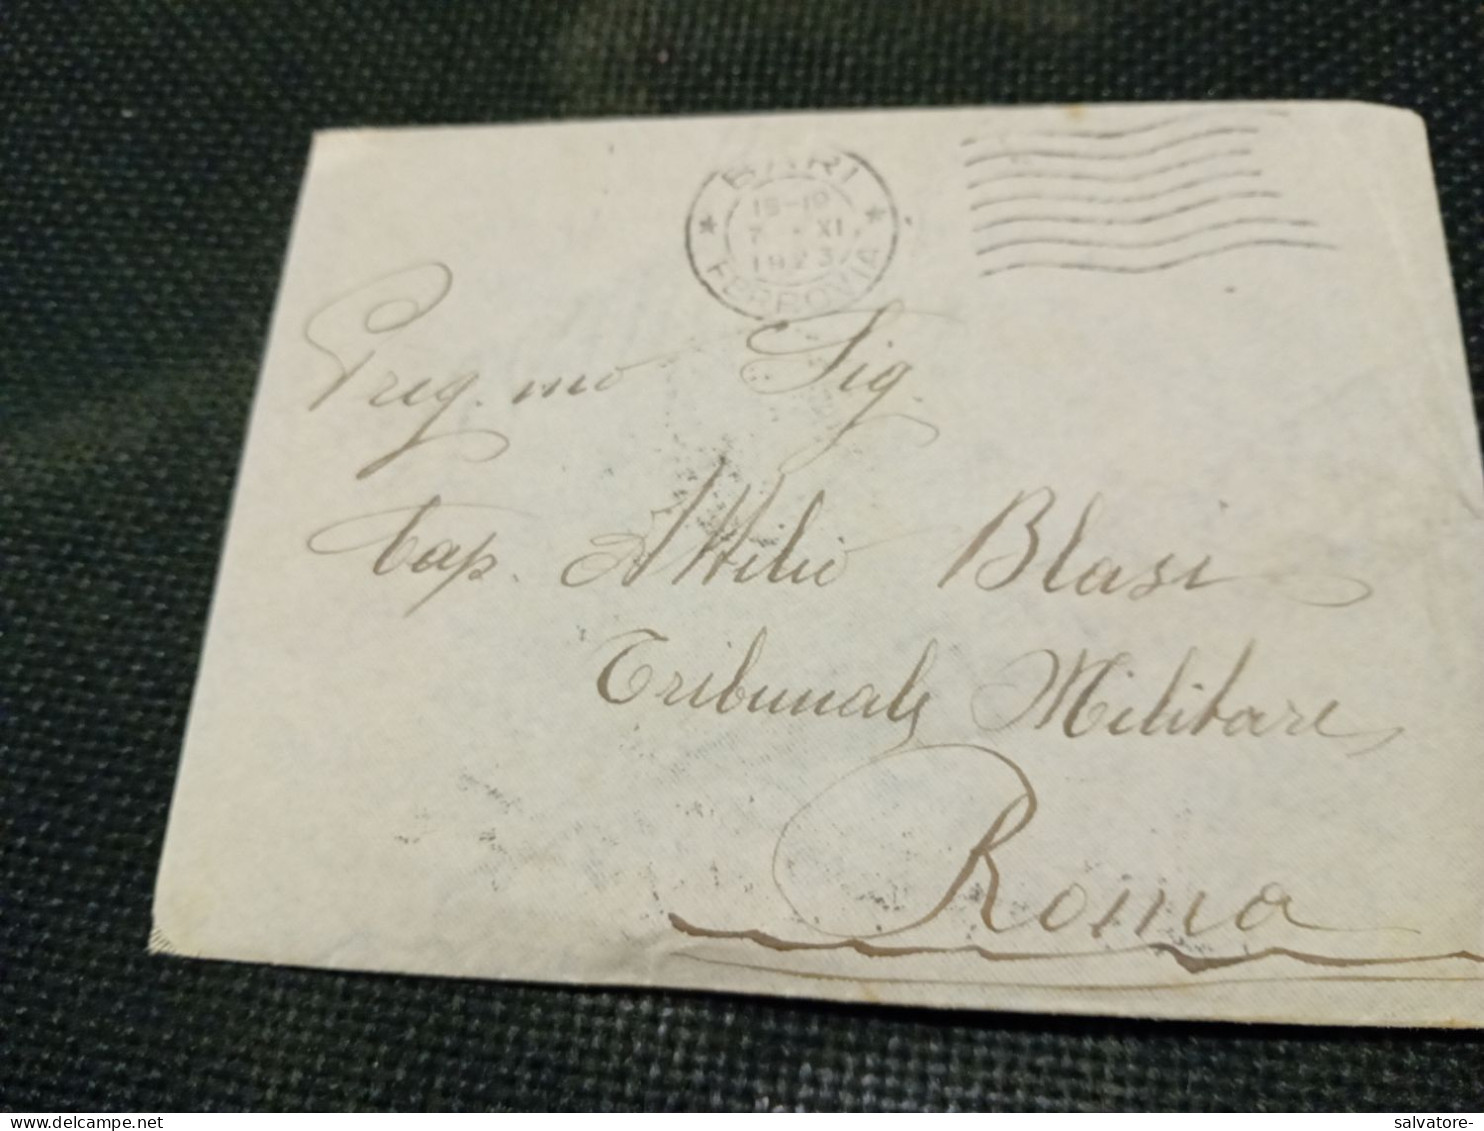 BARI
7 · XI
1923
FERROVIA
Preg.mo Sig.
Cap. Attilio Blasi
Tribunale Militare
Roma
salvatore-